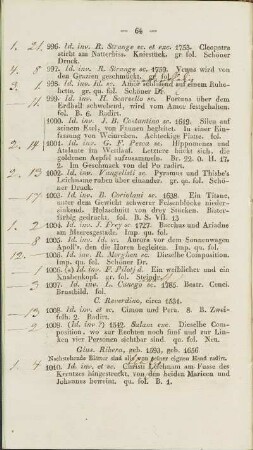 — 64 —
1. 21. 996. Id. inv. R. Strange sc. et exc. 1753. Cleopatra
stirbt am Natterbiss. Kniestück. gr. fol. Schöner
Druck.
4. 8 997. Id. inv. R. Strange sc. 1759. Venus wird von
den Grazien geschmückt. gr. fol.
998. Id. inv. Id. sc. Amor schlafend auf einem Ruhe-
bette. gr. qu. fol. Schöner Dr.
11 999. Id. inv. H. Scarsello sc. Fortuna über dem
Erdball schwebend, wird vom Amor festgehalten.
fol. B. 6. Radirt.
1000. Id. inv. J. B. Costantino sc. 1619. Silen auf
seinem Esel, von Frauen begleitet. In einer Einfas-
sung von Weinreben. Achteckige Platte. fol.
2. 14 1001. Id. inv. G. F. Perez sc. Hippomenes und
Atalante im Wettlauf. Letztere bückt sich, die
goldenen Aepfel aufzusammeln. Br. 22. 0. H. 17.
2. Im Geschmack von del Po radirt.
2. 13 1002. Id. inv. Vangelisti sc. Pyramus und Thisbe's
Leichname ruhen über einander. gr. qu. fol. Schö-
ner Druck.
17 1003. Id. inv. B. Coriolani sc. 1638. Ein Titane,
unter dem Gewicht schwerer Felsenblöcke nieder-
sinkend. Holzschnitt von drey Stöcken. Bister-
farbig gedruckt. fol. B. S. VII. 13
1. 2 1004. Id. inv. J. Frey sc. 1727. Bacchus und Ariadne
am Meeresgestade. Imp. qu. fol.
8 1005. Id. inv. Id. sc. Aurora vor dem Sonnenwagen
Apoll's, den die Horen begleiten. Imp. qu. fol.
12. 1006. Id. inv. R. Morghen sc. Dieselbe Composition.
Imp. qu. fol. Schöner Dr.
1006. (a) Id. inv. F. Piloty d. Ein weiblicher und ein
Knabenkopf. gr. fol. Steindr.
3 1007. Id. inv. L. Cunego sc. 1785. Beatr. Cenci.
Brustbild. fol.
C. Reverdino, circa 1531.
13 1008. Id. inv. et sc. Cimon und Pera. 8. B. Zwei-
felh. 2. Radirt.
2 1009. (Id. inv?) 1542. Salam. exc. Dieselbe Compo-
sition, wo zur Rechten noch fünf und zur Lin-
ken vier Personen sichtbar sind. qu. fol. Neu.
Gius. Ribera, geb. 1593, geb. 1656
Nachstehende Blätter sind alle von seiner eignen Hand radirt.
1. 4 1010. Id. inv. et sc. Christi Leichnam am Fusse des
Kreutzes hingestreckt, von den beiden Marieen und
Johannes beweint. qu. fol. B. 1.